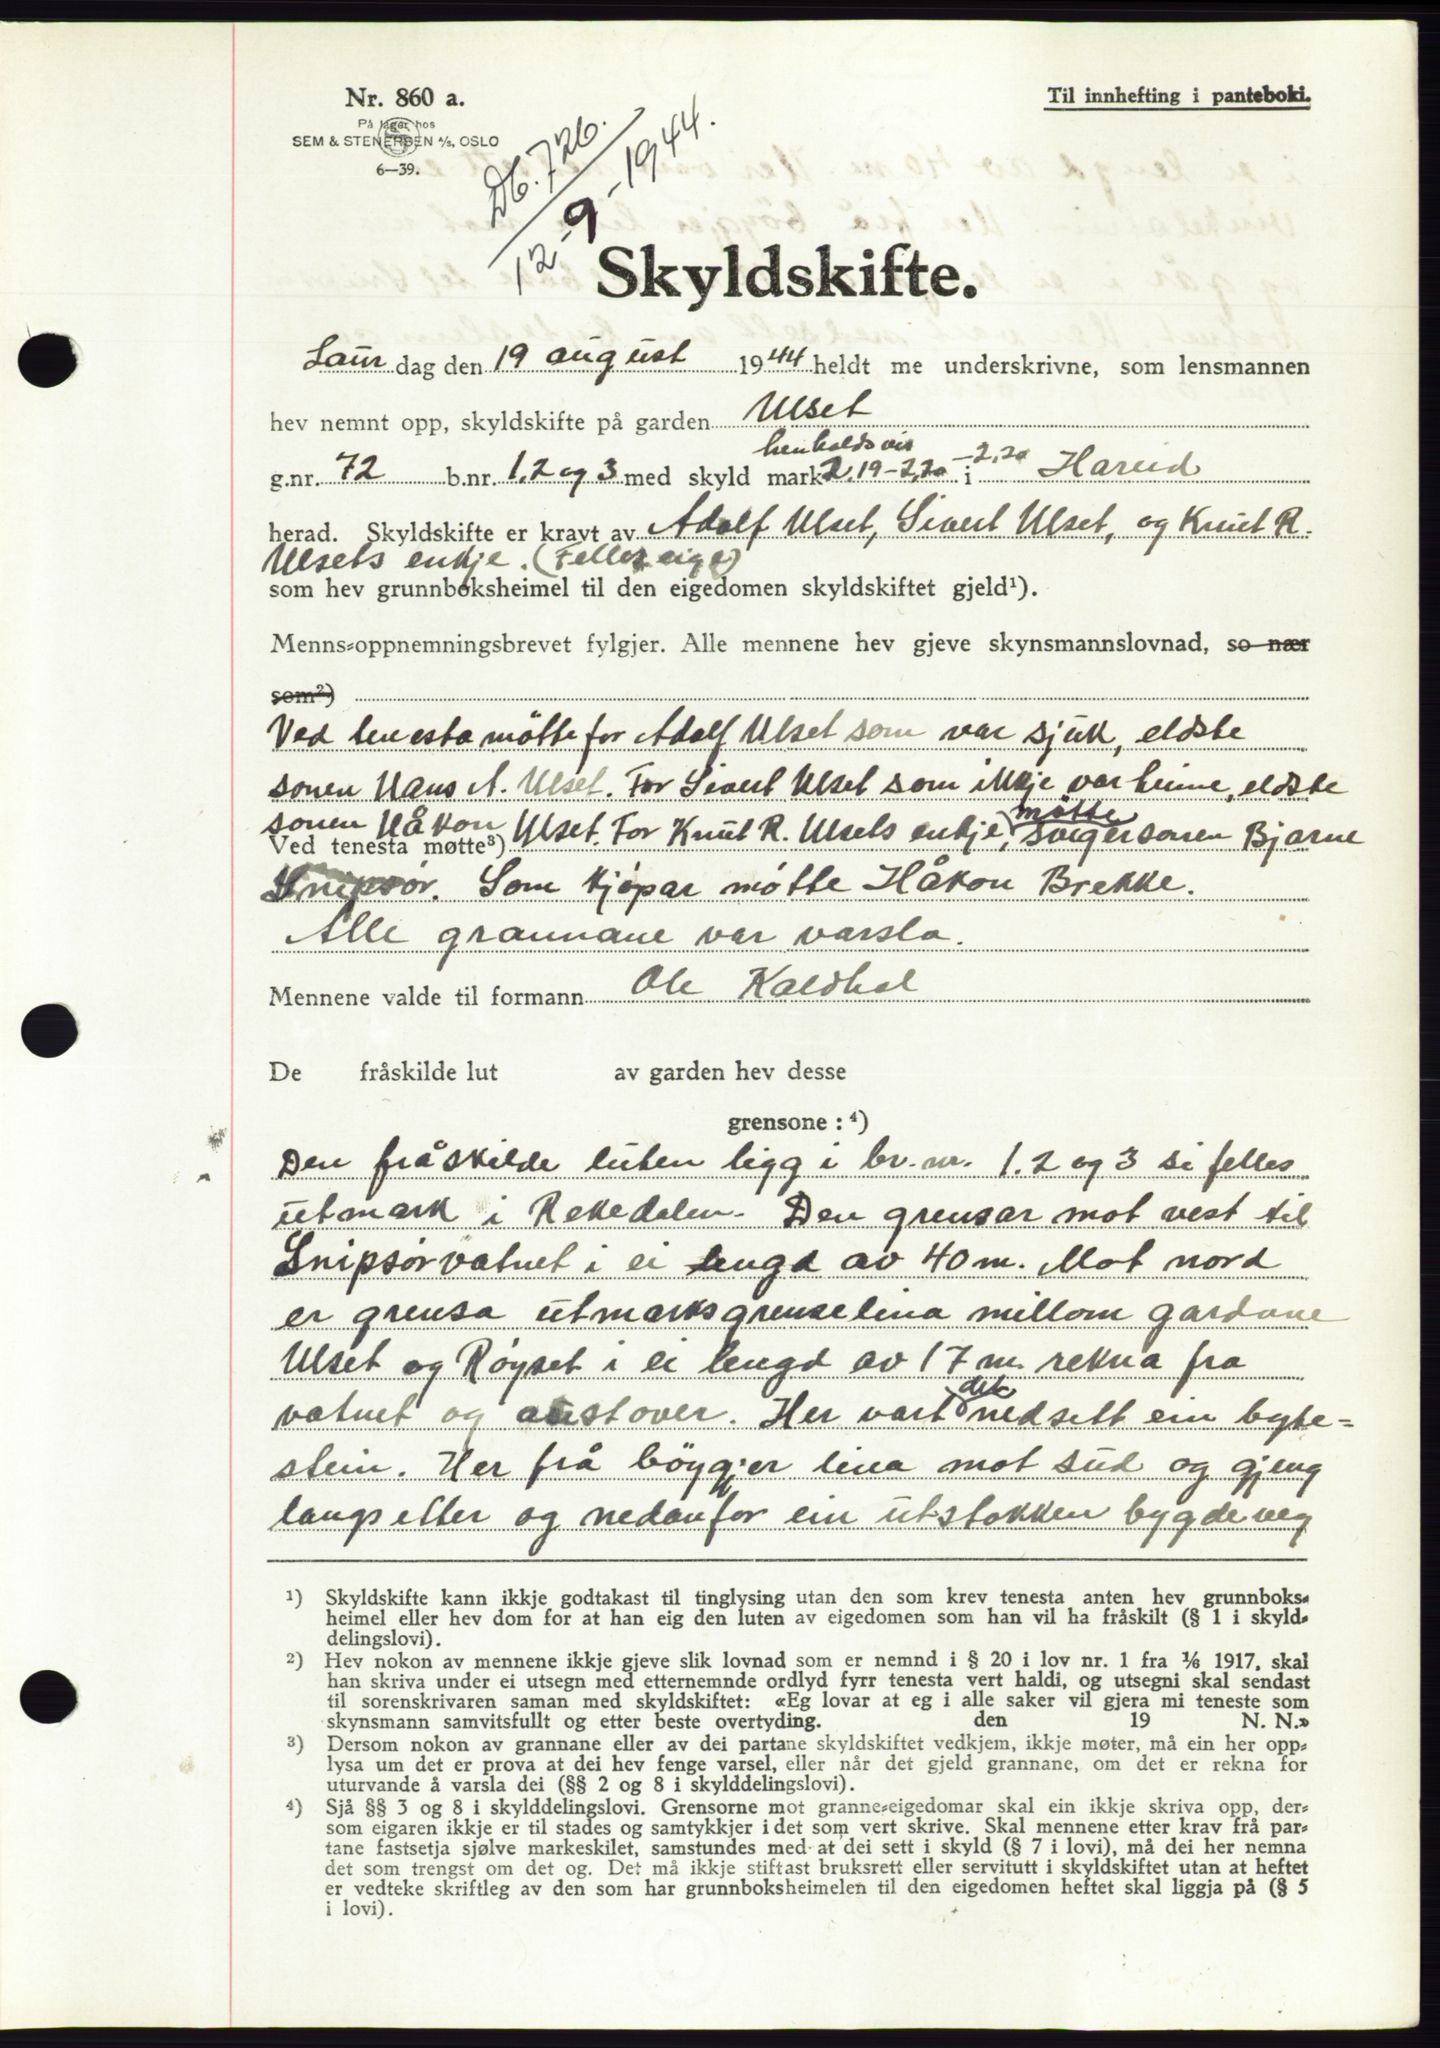 Nr. 860 a.
Til innhefting i panteboki.
På lager hos
SEM & STENERSEN A/S, OSLO
6—39.
Db. 726.
12-9-1944.
Skyldskifte.
Laur dag den 19 august 1944 heldt me underskrivne, som lensmannen
hev nemnt opp, skyldskifte på garden Ulset
henholdsvis
g.nr. 72 b.nr. 1, 2 og 3 med skyld mark 2,19 - 2,20 - 2,20 i Hareid
herad. Skyldskifte er kravt av Adolf Ulset, Sivert Ulset, og Knut R.
Ulsets enkje. (Felles eige)
som hev grunnboksheimel til den eigedomen skyldskiftet gjeld¹).
Menns-oppnemningsbrevet fylgjer. Alle mennene hev gjeve skynsmannslovnad, so nær
som²)
Ved tenesta møtte for Adolf Ulset som var sjuk, eldste
sonen Hans A. Ulset. For Sivert Ulset som ikkje var heime, eldste
sonen Håkon Ulset. For Knut R. Ulsets enkje, møtte svigersonen Bjarne
Ved tenesta møtte³)
Snipsør. Som kjøpar møtte Håkon Brekke.
Alle grannane var varsla.
Mennene valde til formann Ole Kaldhol
De fråskilde lut av garden hev desse
grensone : ⁴)
Den fråskilde luten ligg i br. nr. 1. 2 og 3 si felles
utmark i Rekedalen. Den grensar mot vest til
Snipsørvatnet i ei lengd av 40 m. Mot nord
er grensa utmarksgrenselina millom gardane
Ulset og Røyset i ei lengd av 17 m. rekna fra
vatnet og austover. Her vart det nedsett ein byte=
stein. Her frå bøygjer lina mot sud og gjeng
langs etter og nedanfor ein utstokken bygdeveg
¹) Skyldskifte kann ikkje godtakast til tinglysing utan den som krev tenesta anten hev grunnboks-
heimel eller hev dom for at han eig den luten av eigedomen som han vil ha fråskilt (§ 1 i skyld-
delingslovi).
²) Hev nokon av mennene ikkje gjeve slik lovnad som er nemnd i § 20 i lov nr. 1 fra ¹/₆ 1917, skal
han skriva under ei utsegn med etternemnde ordlyd fyrr tenesta vert haldi, og utsegni skal sendast
til sorenskrivaren saman med skyldskiftet: «Eg lovar at eg i alle saker vil gjera mi teneste som
skynsmann samvitsfullt og etter beste overtyding. den 19 N. N.»
³) Dersom nokon av grannane eller av dei partane skyldskiftet vedkjem, ikkje møter, må ein her opp-
lysa um det er prova at dei hev fenge varsel, eller når det gjeld grannane, om det er rekna for
uturvande å varsla dei (§§ 2 og 8 i skylddelingslovi).
⁴) Sjå §§ 3 og 8 i skylddelingslovi. Grensorne mot granne-eigedomar skal ein ikkje skriva opp, der-
som eigaren ikkje er til stades og samtykkjer i det som vert skrive. Skal mennene etter krav frå par-
tane fastsetja sjølve markeskilet, samstundes med at dei sett i skyld (§ 7 i lovi), må dei her nemna
det som trengst om det og. Det må ikkje stiftast bruksrett eller servitutt i skyldskiftet utan at heftet
er vedteke skriftleg av den som har grunnboksheimelen til den eigedomen heftet skal liggja på (§ 5
i lovi).